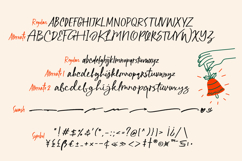 Regular ABCDEFGHIJKLMNOPQRSTUVWXYZ
Alternate ABCDEFGHIJKLMNOPQRSTUVWXYZ
Regular abcdefghijklmnopqrstuvwxyz
Alternate 1 abcdefghijklmnopqrstuvwxyz
Alternate 2 abcdefghijklmnopqrstuvwxyz
Swash
Symbol